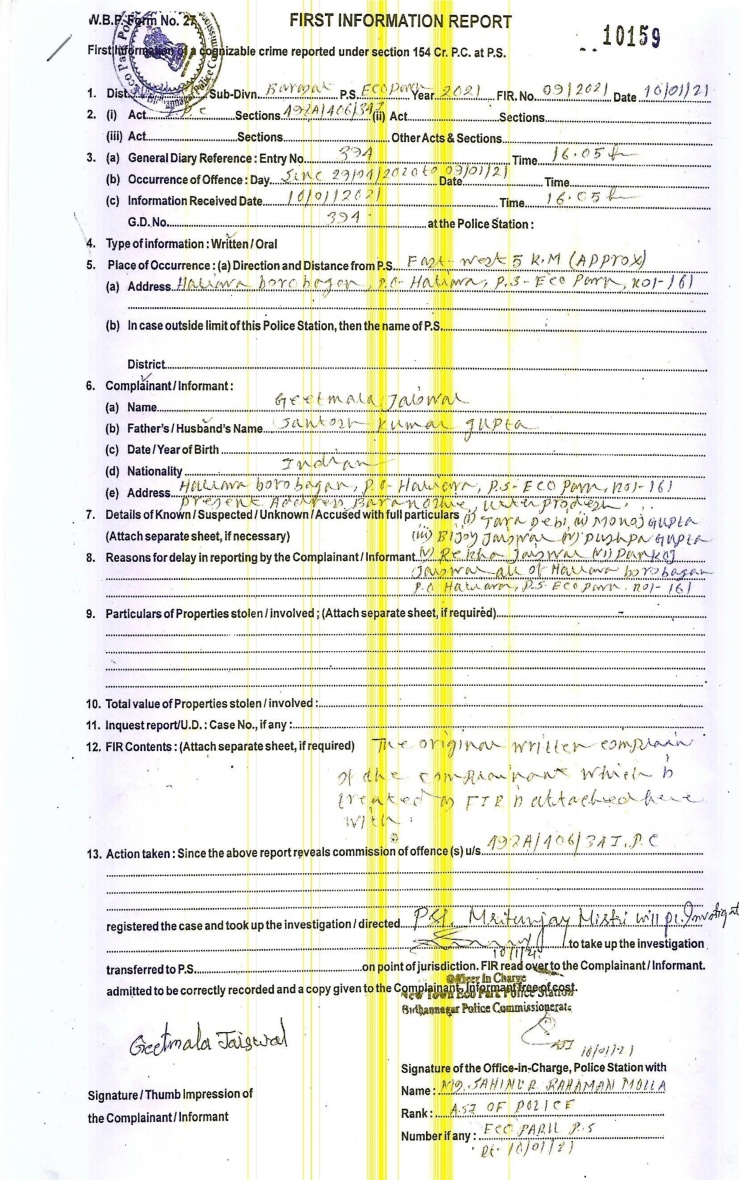 W.B.P. Form No. 27
FIRST INFORMATION REPORT
10159
First Information of a cognizable crime reported under section 154 Cr. P.C. at P.S.
1. Dist. Sub-Divn. Barasat P.S. Eco Park Year 2021 FIR. No. 09/2021 Date 10/01/21
2. (i) Act I P C Sections 498A/406/34 (ii) Act Sections
(iii) Act Sections Other Acts & Sections
3. (a) General Diary Reference : Entry No. 394 Time 16.05 h
(b) Occurrence of Offence : Day Sinc 29/04/2020 to 09/01/21 Date Time
(c) Information Received Date 10/01/2021 Time 16.05 h
G.D. No. 394 at the Police Station :
4. Type of information : Written / Oral
5. Place of Occurrence : (a) Direction and Distance from P.S. East-West 5 K.M (APPROX)
(a) Address Hatiara borobagan, P.O- Hatiara, P.S- Eco Park, Kol- 161
(b) In case outside limit of this Police Station, then the name of P.S.
District
6. Complainant / Informant :
(a) Name Geetmala Jaiswal
(b) Father's / Husband's Name Santosh Kumar Gupta
(c) Date / Year of Birth
(d) Nationality Indian
(e) Address Hatiara borobagan, P.O- Hatiara, P.S- Eco Park, Kol- 161
Present Address
7. Details of Known / Suspected / Unknown / Accused with full particulars (i) Tara Debi, (ii) Monoj Gupta
(Attach separate sheet, if necessary) (iii) Bijoy Jaiswal (iv) Pushpa Gupta
8. Reasons for delay in reporting by the Complainant / Informant (v) Rekha Jaiswal (vi) Pankaj
Jaiswal all of Hatiara borobagan
P.O Hatiara, P.S Eco Park. Kol- 161
9. Particulars of Properties stolen / involved ; (Attach separate sheet, if required)
10. Total value of Properties stolen / involved :
11. Inquest report/U.D. : Case No., if any :
12. FIR Contents : (Attach separate sheet, if required) The original written complain
of the complainant which is
treated as FIR is attached here
with.
13. Action taken : Since the above report reveals commission of offence (s) u/s. 498A/406/34 I.P.C
registered the case and took up the investigation / directed PSI. Mritunjay Mistri will pl. Investigat
10/1/21 to take up the investigation
transferred to P.S. on point of jurisdiction. FIR read over to the Complainant / Informant.
admitted to be correctly recorded and a copy given to the Complainant. Informant free of cost.
Officer In Charge
New Town Eco Park Police Station
Bidhannagar Police Commissionerate
Geetmala Jaiswal
ASI 10/01/21
Signature of the Office-in-Charge, Police Station with
Name : MD. SAHINUR RAHAMAN MOLLA
Rank : A.S.I OF POLICE
Number if any : ECO PARK P.S
Dt. 10/01/21
Signature / Thumb Impression of
the Complainant / Informant